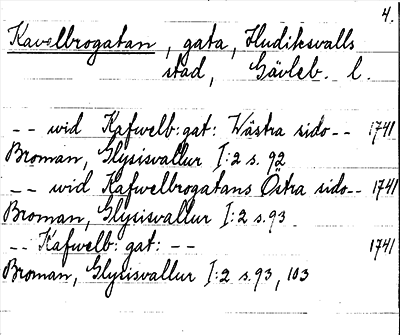 4.
Kavelbrogatan, gata, Hudiksvalls
stad, Gävleb. l.
-- wid Kafwelb: gat: Wästra sido -- 1741
Broman, Glysisvallur I:2 s. 92
-- wid Kafwelbrogatans Östra sido -- 1741
Broman, Glysisvallur I:2 s. 93
-- Kafwelb: gat: -- 1741
Broman, Glysisvallur I:2 s. 93, 103